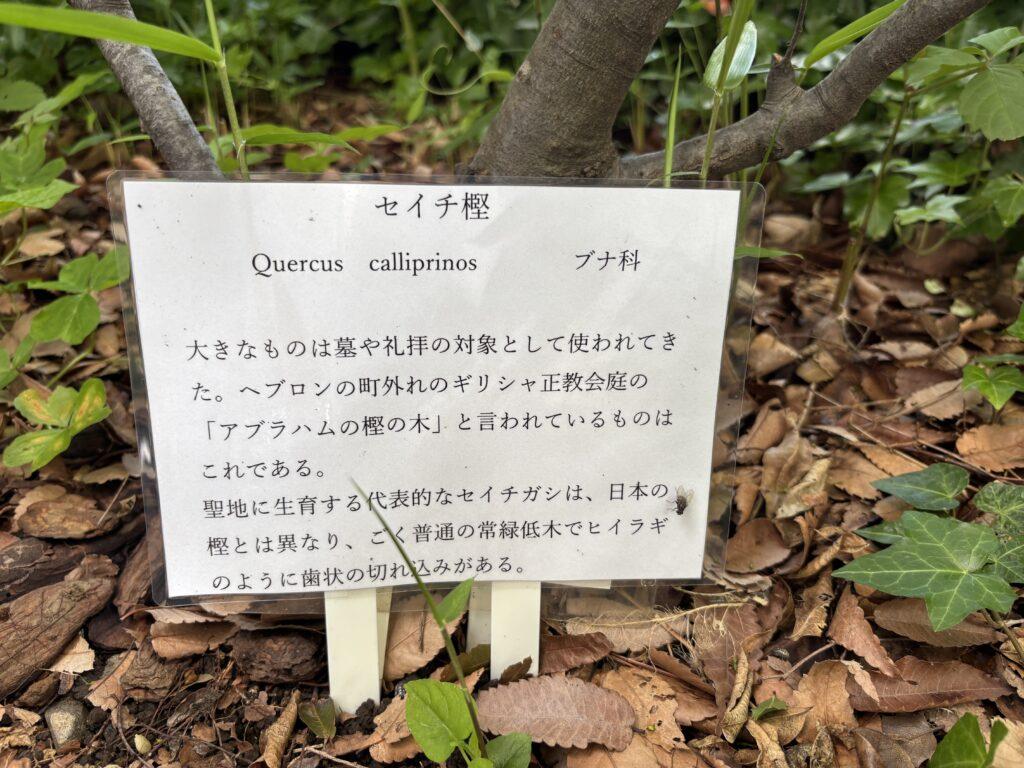 セイチ樫
Quercus calliprinos ブナ科
大きなものは墓や礼拝の対象として使われてき
た。ヘブロンの町外れのギリシャ正教会庭の
「アブラハムの樫の木」と言われているものは
これである。
聖地に生育する代表的なセイチガシは、日本の
樫とは異なり、ごく普通の常緑低木でヒイラギ
のように歯状の切れ込みがある。